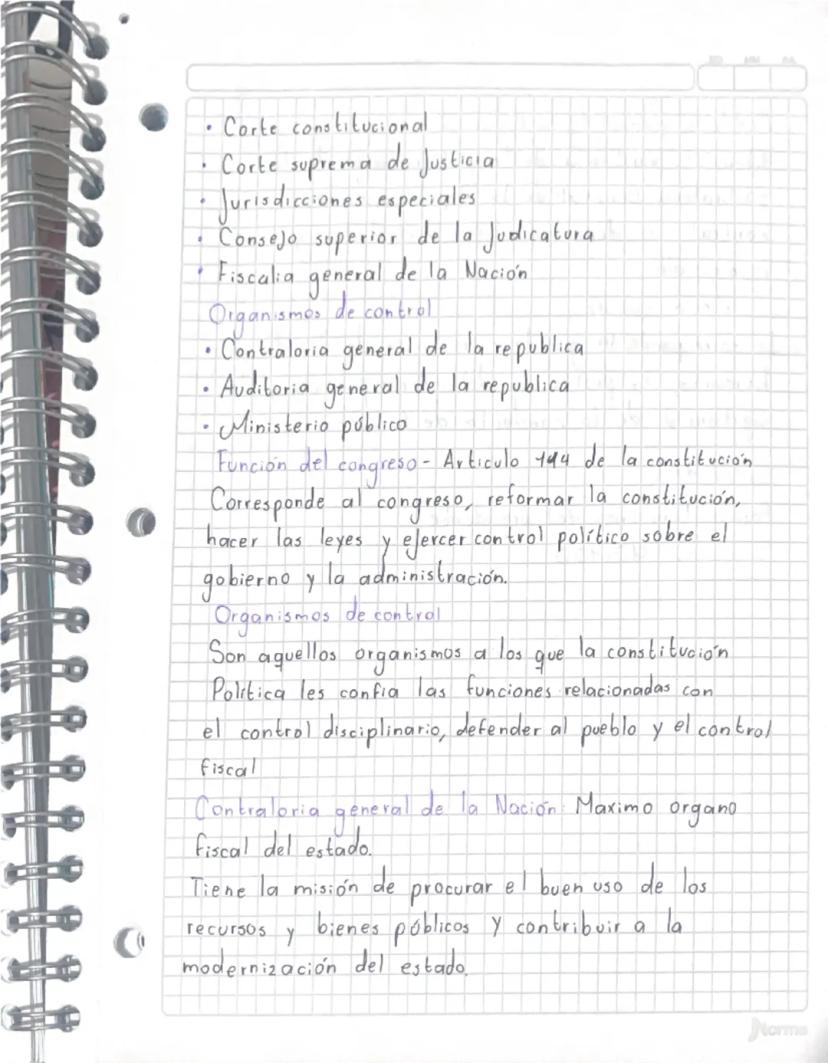 • Corte constitucional
• Corte suprema de Justicia
• Jurisdicciones especiales
• Consejo superior de la Judicatura
• Fiscalia general de la Nación
Organismos de control
• Contraloria general de la republica
• Auditoria general de la republica
• Ministerio público
Función del congreso - Articulo 144 de la constitución
Corresponde al congreso, reformar la constitución,
hacer las leyes y ejercer control político sobre el
gobierno y la administración.
Organismos de control
Son aquellos organismos a los que la constitución
Política les confia las funciones relacionadas con
el control disciplinario, defender al pueblo y el control
fiscal
Contraloria general de la Nación: Maximo órgano
fiscal del estado.
Tiene la misión de procurar el buen uso de los
recursos y bienes públicos y contribuir a la
modernización del estado.
Norma